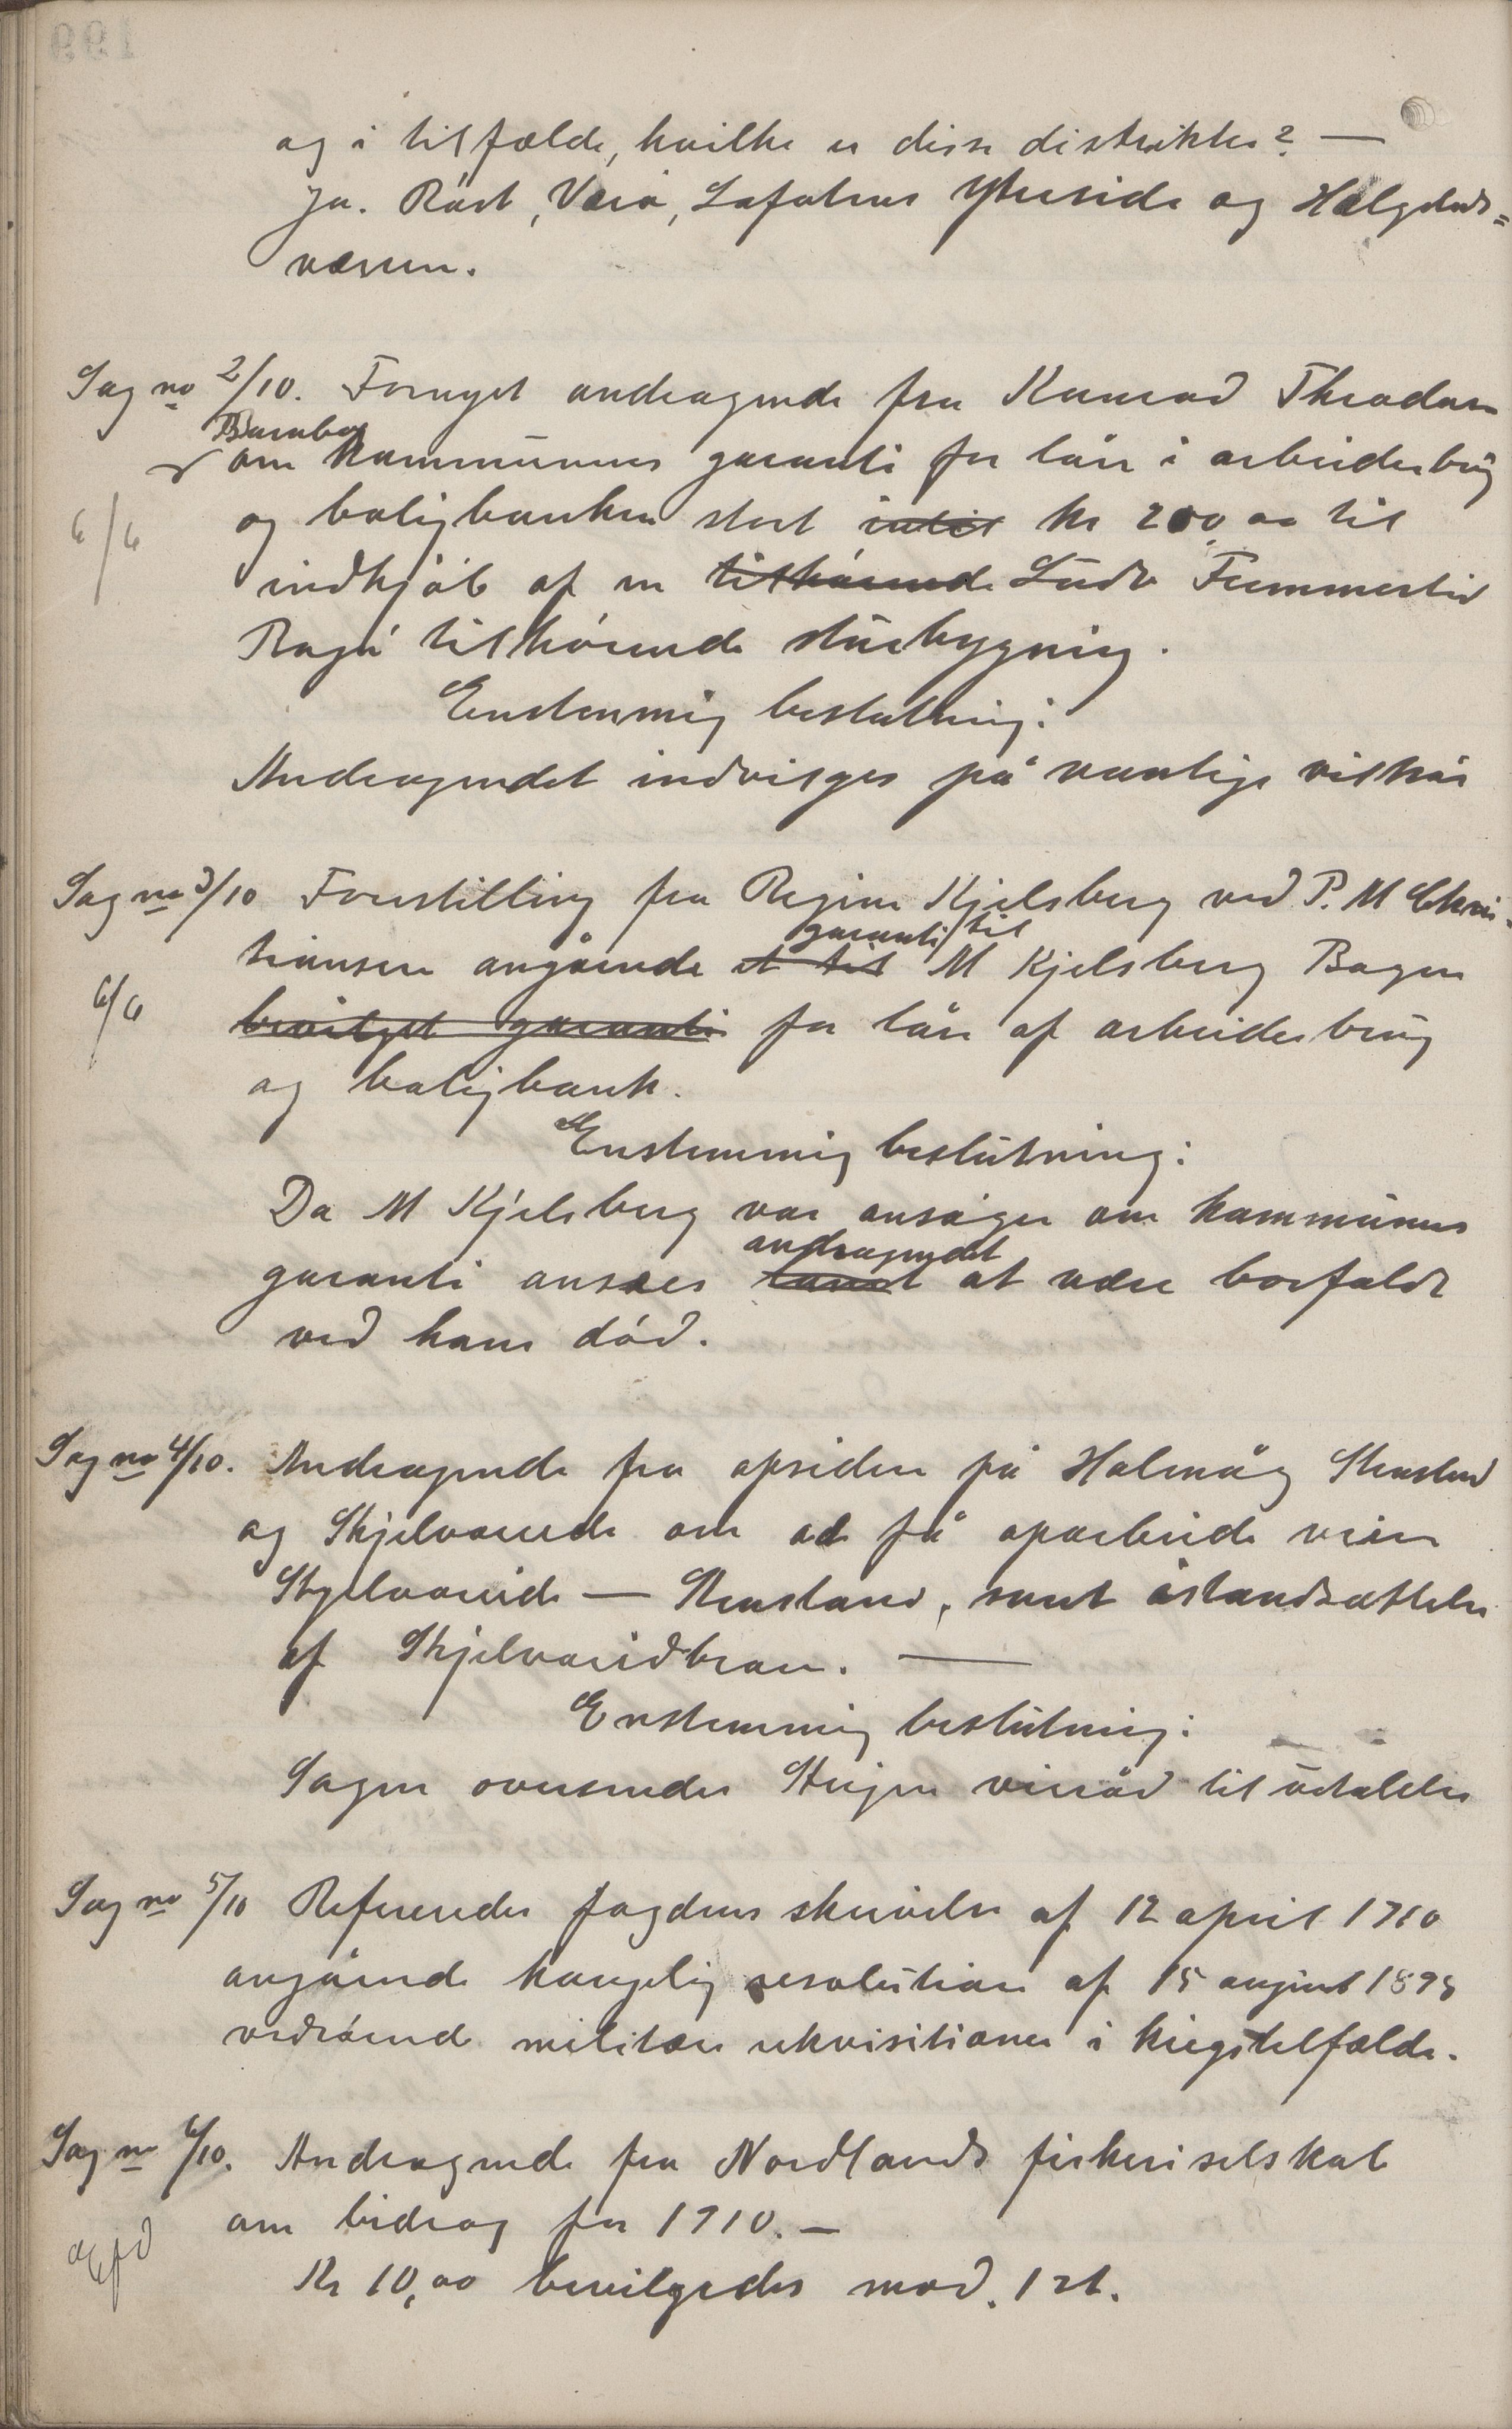 og i tilfælde, hvilke er disse distrikter? —
Ja. Røst, Værø, Lofotens Yterside og Helgelands=
værene.
Sag no 2/10. Fornyet andragende fra Konrad Theodorsen
Barnbog
om kommunens garanti for lån i arbeiderbrug
6/6
og boligbanken stort indtil kr 200,00 til
indkjøb af en tilhørende Ludv Tummestid
Bogø tilhørende stuebygning.
Enstemmig beslutning:
Andragendet indvilges på vanlige vilkår
Sag no 3/10 Forestilling fra Regine Kjelsberg ved P. M Chris-
garanti til
tiansen angående et til M Kjelsberg Bogen
6/6
bevilget garanti for lån af arbeiderbrug
og boligbank.
Enstemmig beslutning:
Da M Kjelsberg var ansøger om kommunens
andragendet
garanti ansees lånet at være bortfaldt
ved hans død.
Sag no 4/10. Andragende fra opsidere på Holmåg Stensland
og Skjelvareid om at få oparbeide veien
Skjelvareid — Stensland, samt istandsættelse
af Skjelvareidbroen. —
Enstemmig beslutning:
Sagen oversendes Steigen veiråd til udtalelse
Sag no 5/10 Refereredes fogdens skrivelse af 12 april 1910
angående kongelig resolution af 15 august 1898
vedrørende militære rekvisitioner i krigstilfælde.
Sag no 6/10. Andragende fra Nordlands fiskeriselskab
om bidrag for 1910. —
Kr 10,00 bevilgedes mod. 1 st.